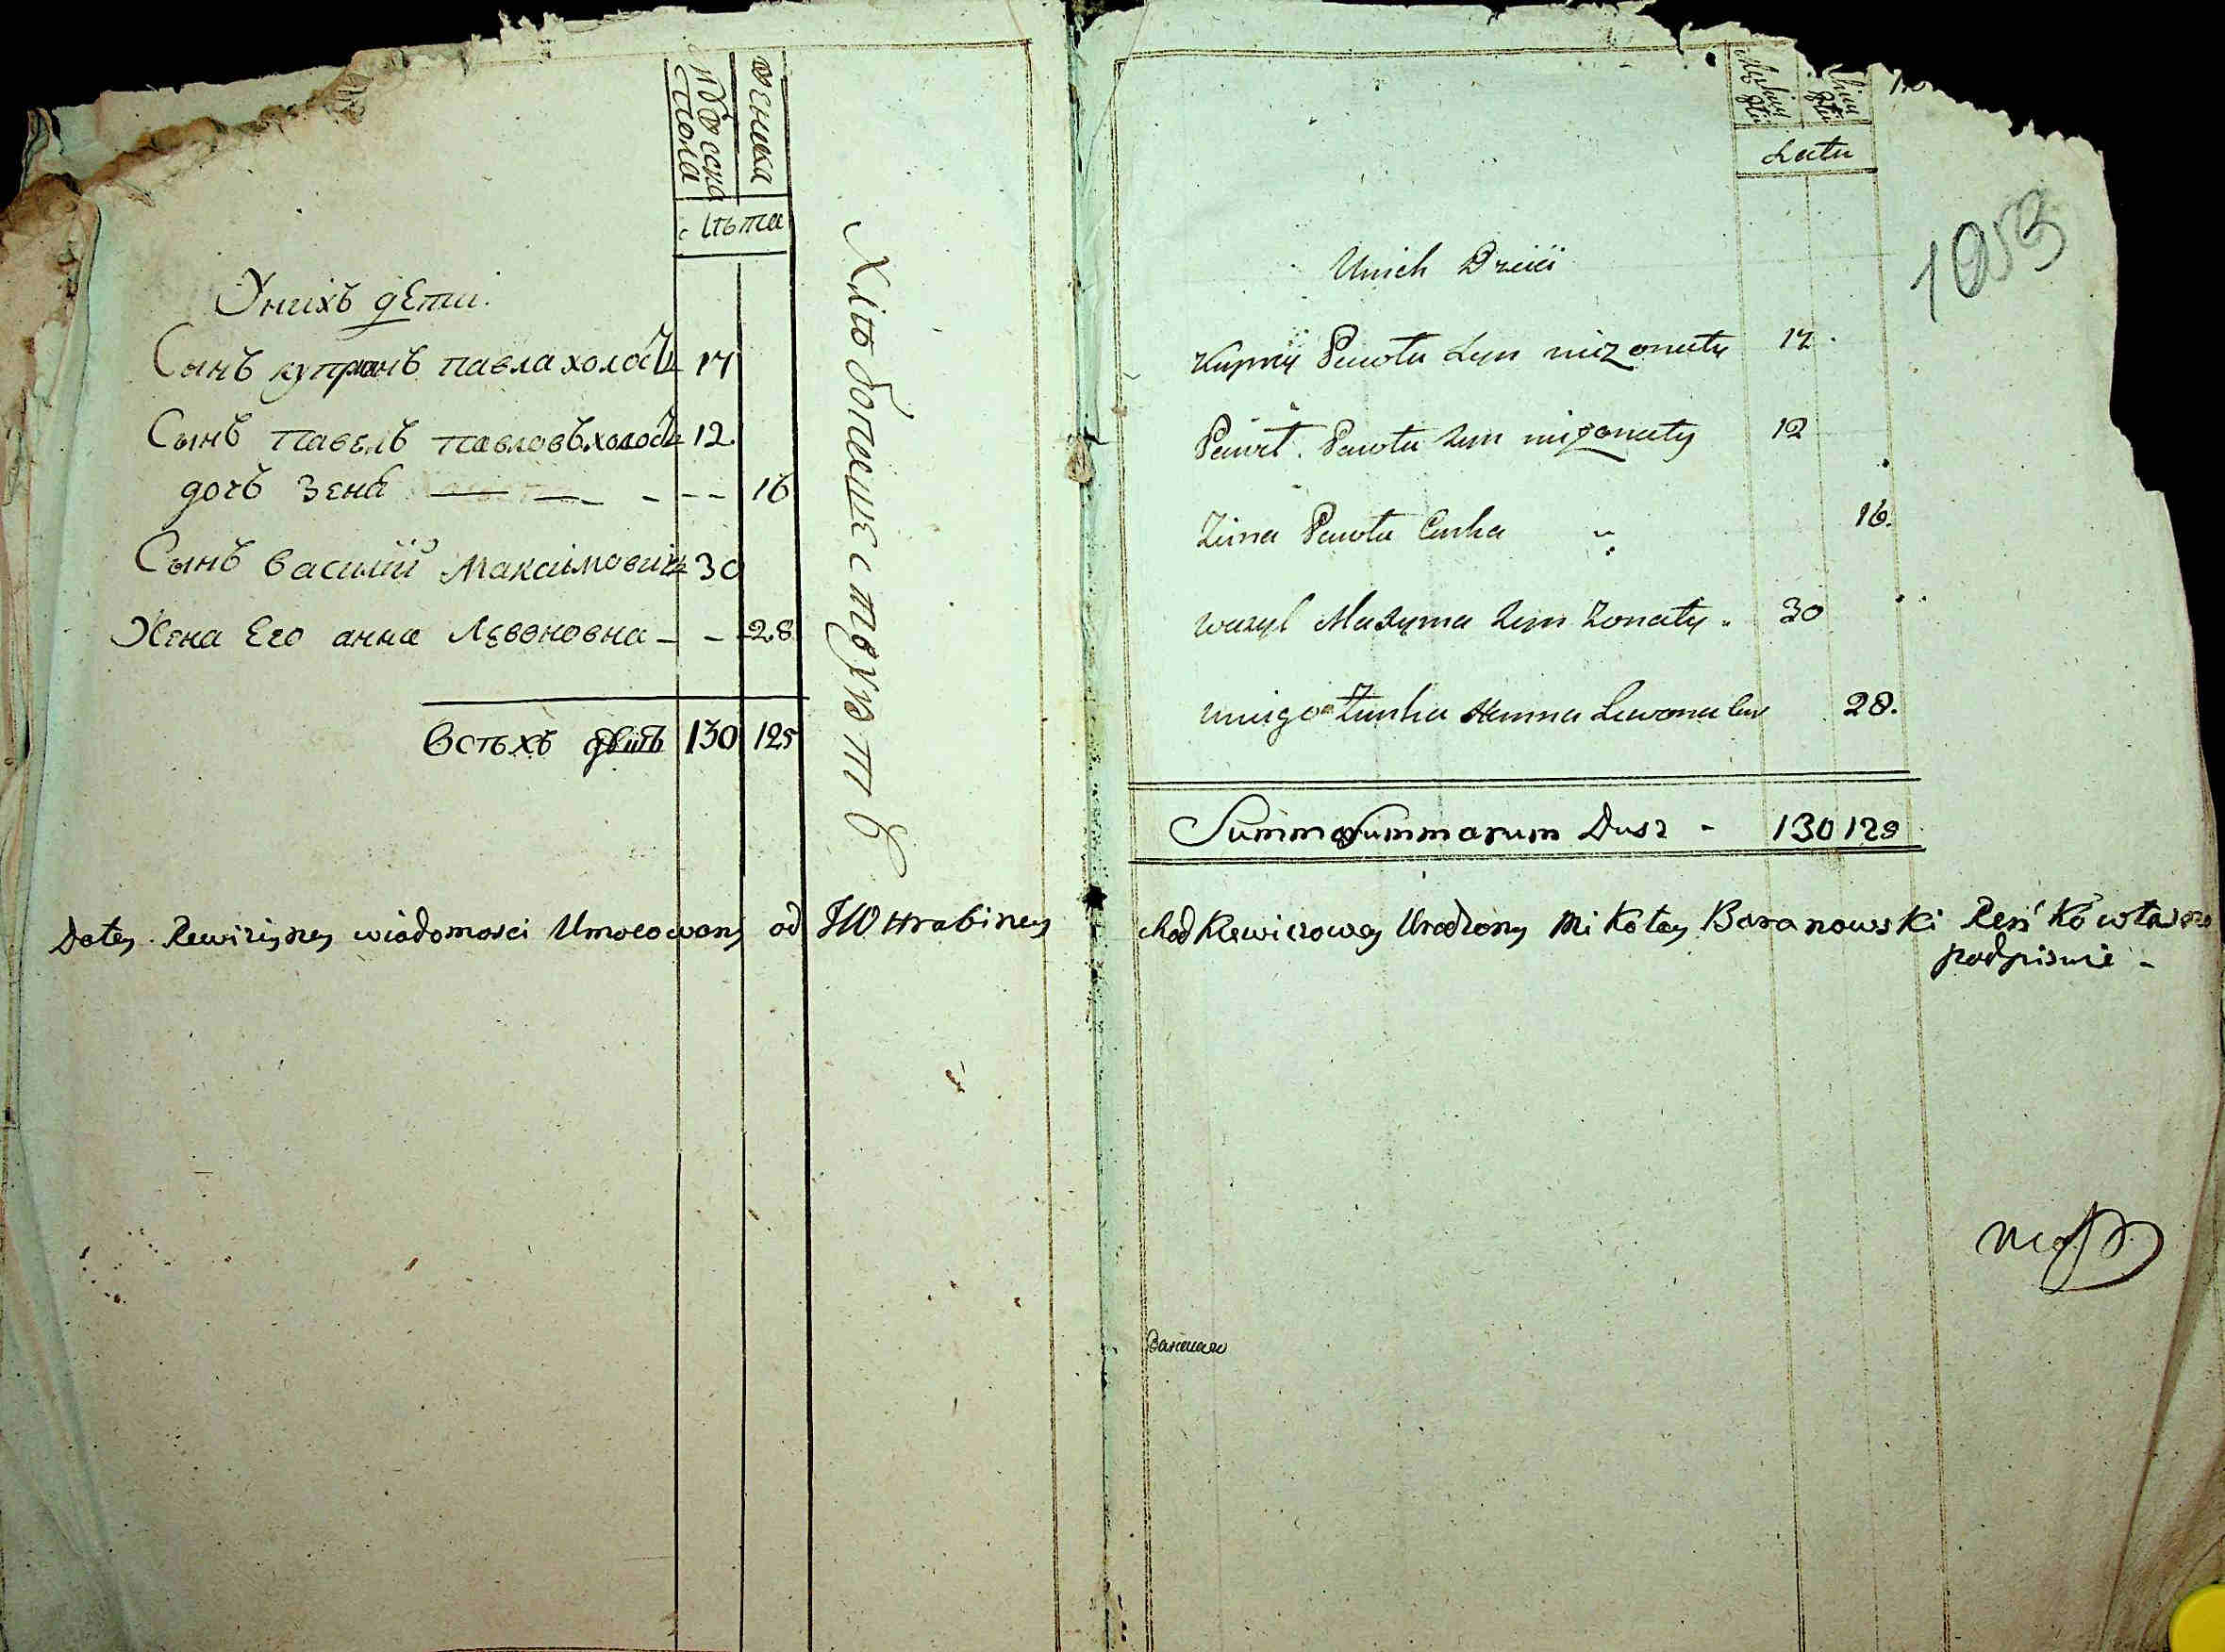 мужеска
пола
женска
лѣта
Унихъ дети.
Сынъ купріянъ павла холос 17
Сынъ павелъ павловъ холос 12
дочь Зена — — - - - 16
Сынъ василий Максимович 30
Жена Его анна Левоновна - - 28
Всѣхъ душъ 130 125
Хлѣбопашествуютъ
Latu
1053
Unich Dzieci
Kuprey Pawła Syn niezonaty 17.
Paweł. Pawła Syn niezonaty 12
Zina Pawła Curka " 16.
wazyl Maxyma Syn Zonaty " 30
uniego Zunka Hanna Lewona Cur 28.
Summa Summarum Dusz - 130 129
Datey Rewizijney wiadomosci Umocowany od JW Hrabiney Chodkiewiczowey Urodzony Mikołay Baranowski Ręn Ko własno
podpisuie -